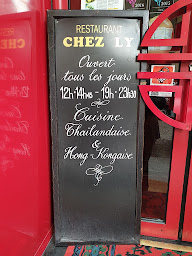 RESTAURANT
CHEZ LY
Ouvert
tous les jours
12h-14h45 - 19h-23h30
Cuisine
Thaïlandaise
&
Hong-Kongaise